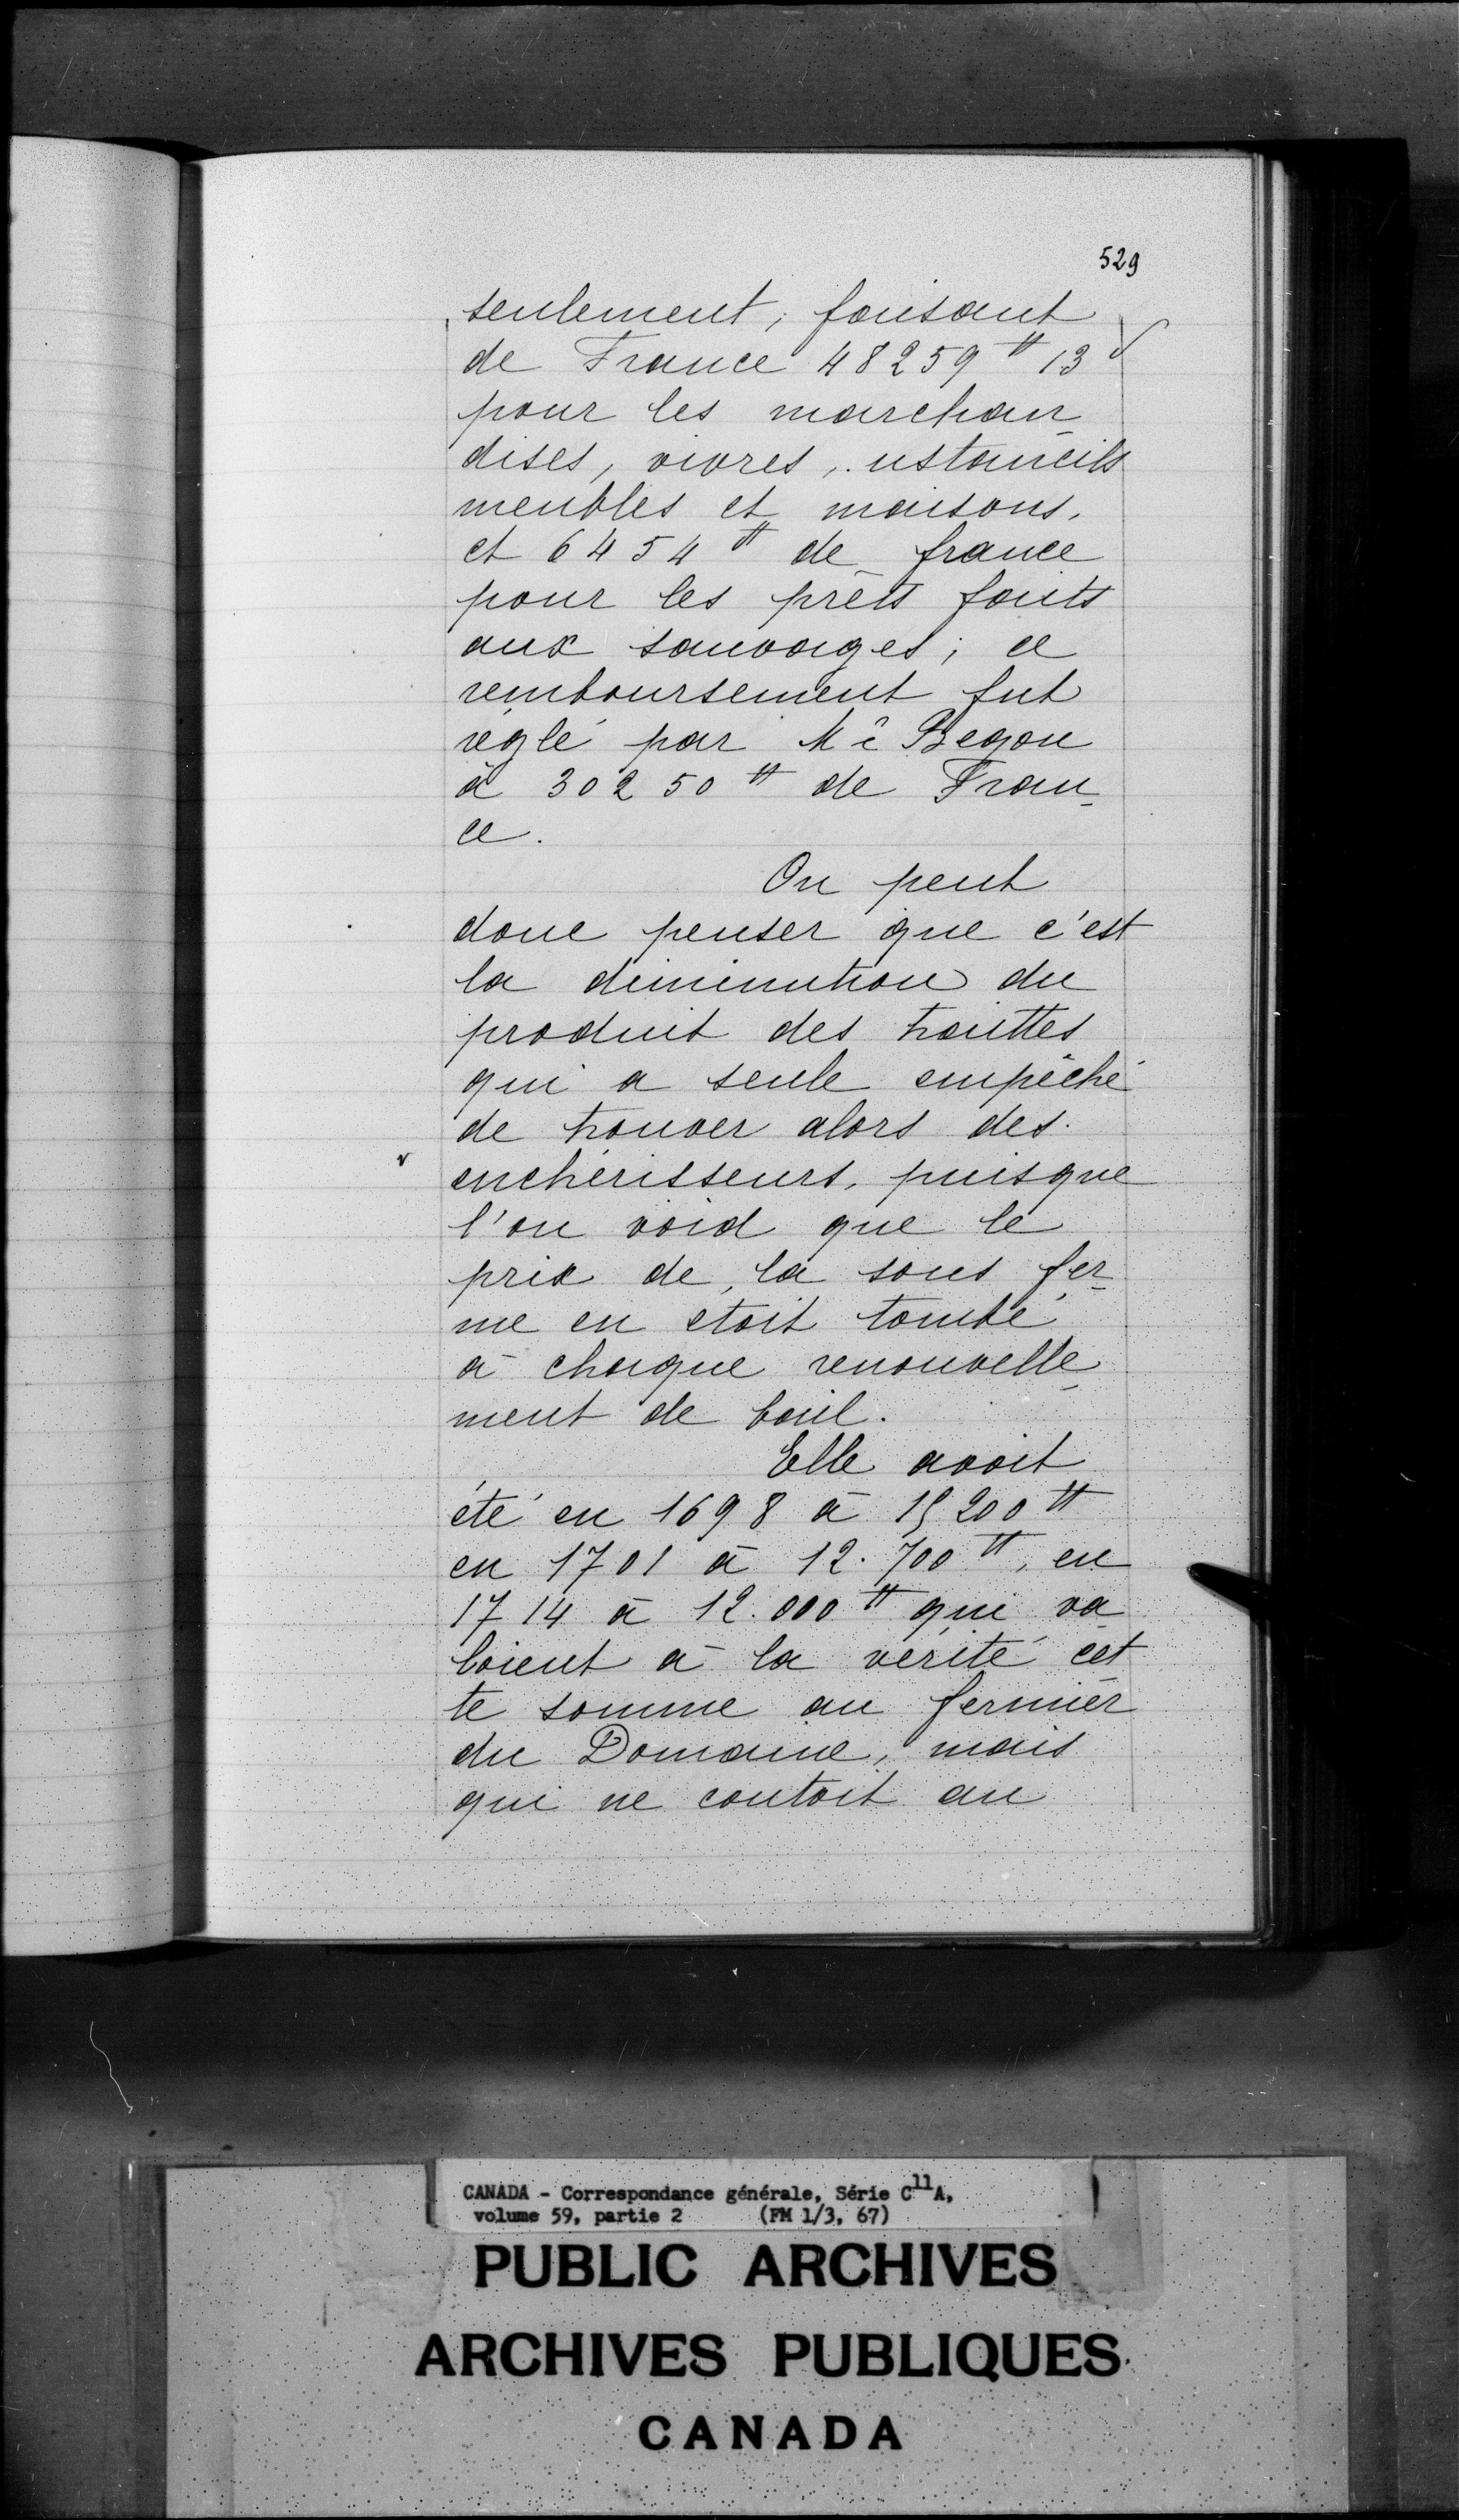 529
seulement, faisant
de France 48259 ₶ 13 s
pour les marchan
dises, vivres, ustanćils
meubles et maisons,
et 6454 ₶ de france
pour les prêts faits
aux sauvages; ce
remboursement fut
réglé par Mr Begon
à 30250 ₶ de Fran-
ce.
On peut
donc penser que c'est
la diminution du
produit des traittes
qui a seule empêché
de trouver alors des
enchérisseurs, puisque
l'on void que le
prix de la sous fer-
me en etoit tombé
à chaque renouvelle-
ment de bail.
Elle avoit
été en 1698 à 15200 ₶
en 1701 à 12.700 ₶, en
1714 à 12.000 ₶ qui va
loient à la vérité cet
te somme au fermier
du Domaine, mais
qui ne coutoit au
CANADA - Correspondance générale, Série C11A,
volume 59, partie 2 (FM 1/3, 67)
PUBLIC ARCHIVES
ARCHIVES PUBLIQUES
CANADA